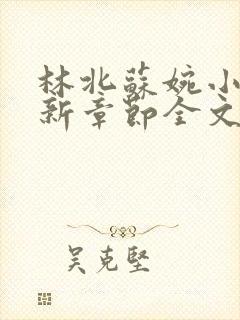 林北蘇婉小
新章節全文
吴克堅